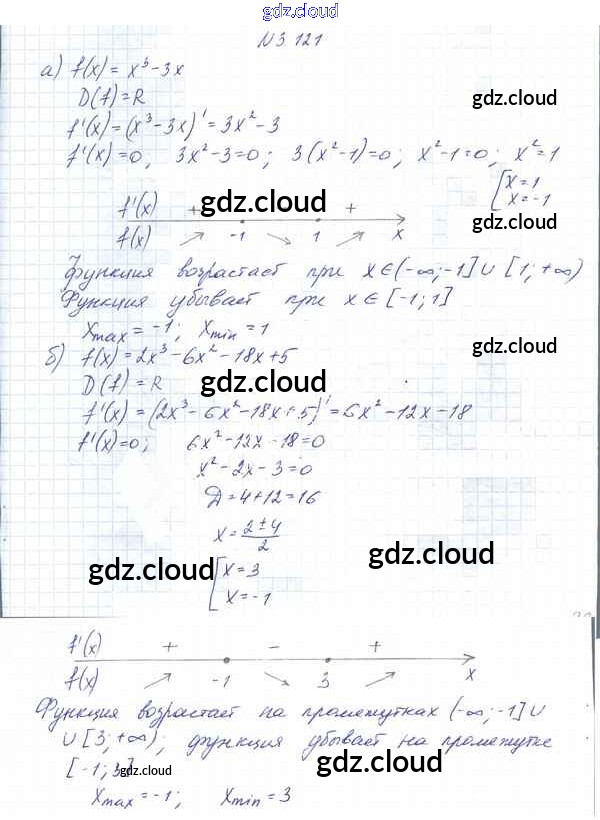 gdz.cloud
N 3.121
а) f(x) = x³ - 3x
D(f) = R
gdz.cloud
f'(x) = (x³ - 3x)' = 3x² - 3
f'(x) = 0, 3x² - 3 = 0; 3(x² - 1) = 0; x² - 1 = 0; x² = 1
[ x = 1
x = -1
f'(x) + gdz.cloud +
f(x) -1 1 x
gdz.cloud
Функция возрастает при x ∈ (-∞; -1] ∪ [1; +∞)
Функция убывает при x ∈ [-1; 1]
xmax = -1; xmin = 1
gdz.cloud
б) f(x) = 2x³ - 6x² - 18x + 5
D(f) = R
gdz.cloud
f'(x) = (2x³ - 6x² - 18x + 5)' = 6x² - 12x - 18
f'(x) = 0; 6x² - 12x - 18 = 0
x² - 2x - 3 = 0
Д = 4 + 12 = 16
x = (2 ± 4)/2
gdz.cloud gdz.cloud
[ x = 3
x = -1
f'(x) + - +
f(x) -1 3 x
Функция возрастает на промежутках (-∞; -1] ∪
∪ [3; +∞); функция убывает на промежутке
[-1; 3] gdz.cloud
gdz.cloud
xmax = -1; xmin = 3